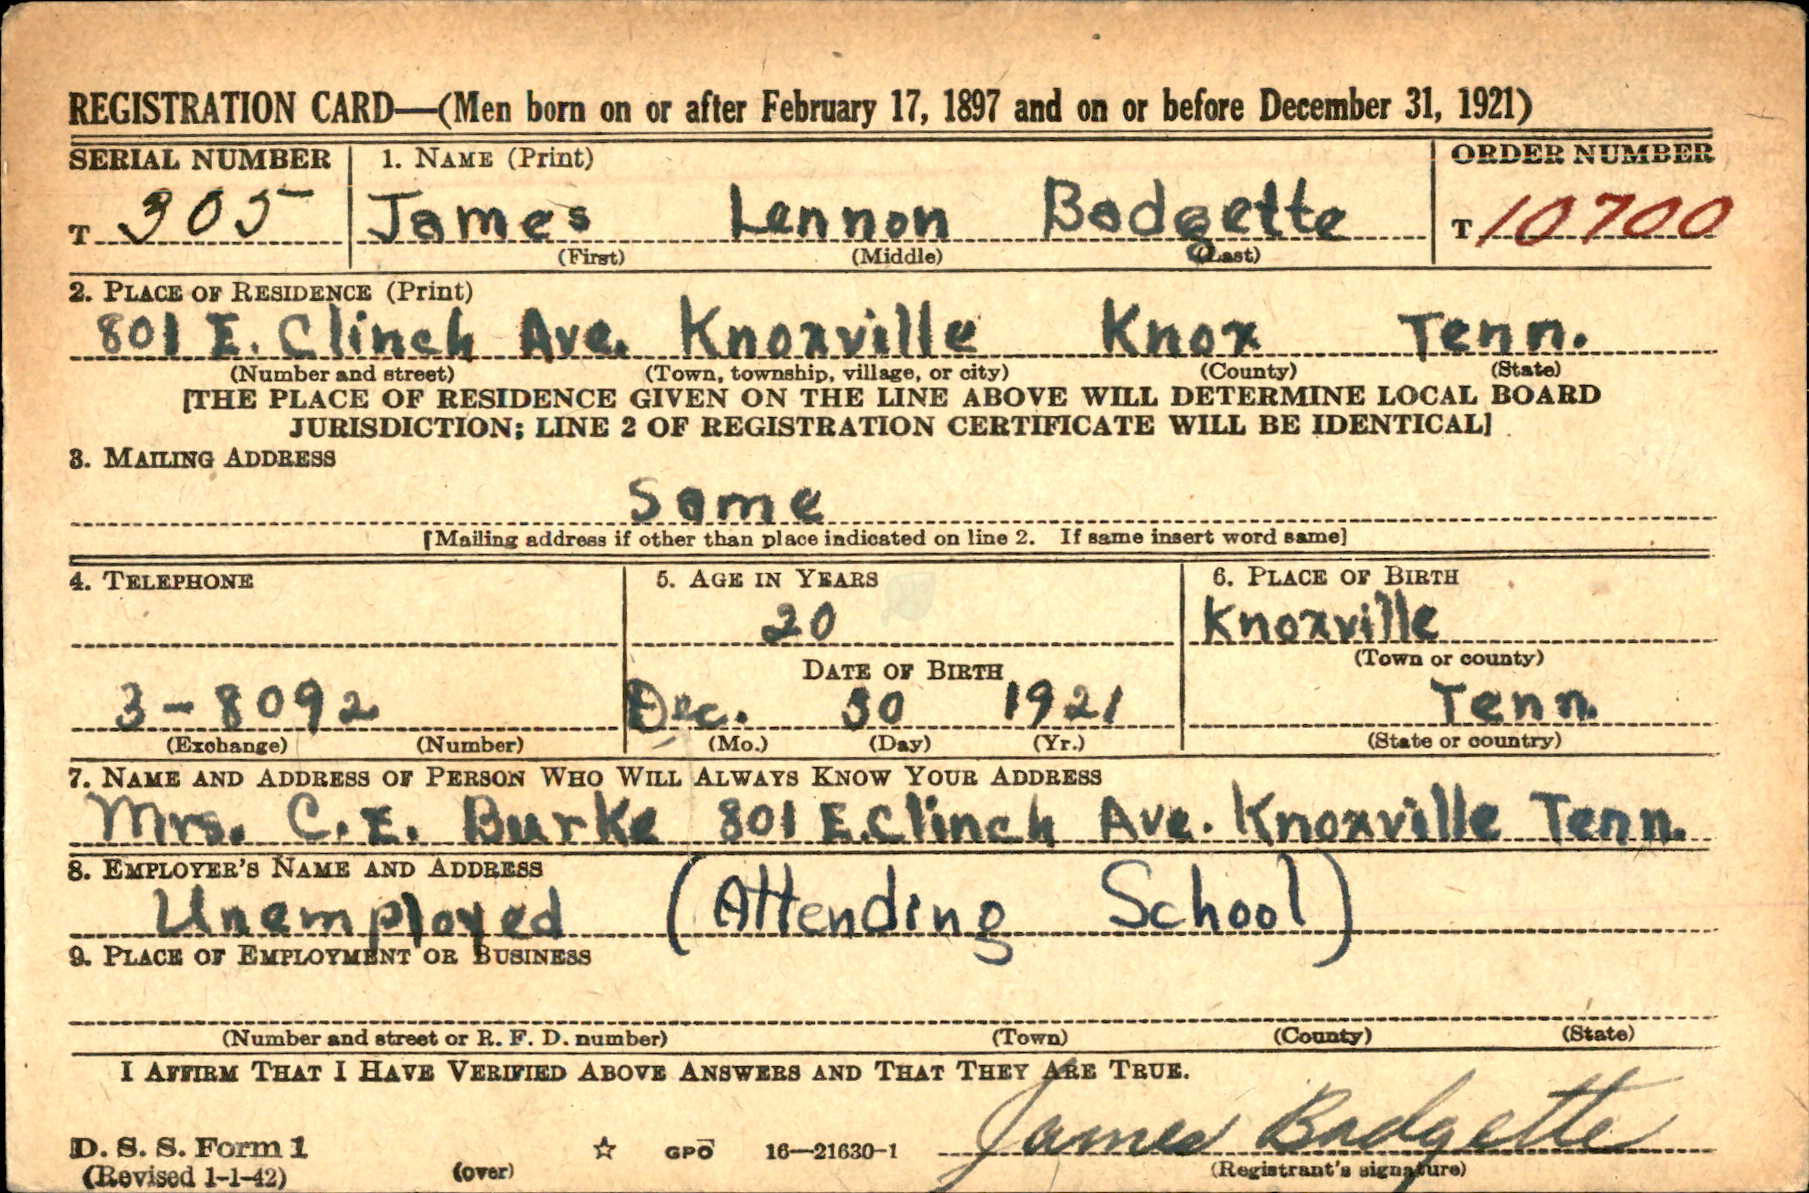 REGISTRATION CARD—(Men born on or after February 17, 1897 and on or before December 31, 1921)
SERIAL NUMBER 1. NAME (Print) ORDER NUMBER
T 305 James Lennon Badgette T 10700
(First) (Middle) (Last)
2. PLACE OF RESIDENCE (Print)
801 E. Clinch Ave. Knoxville Knox Tenn.
(Number and street) (Town, township, village, or city) (County) (State)
[THE PLACE OF RESIDENCE GIVEN ON THE LINE ABOVE WILL DETERMINE LOCAL BOARD
JURISDICTION; LINE 2 OF REGISTRATION CERTIFICATE WILL BE IDENTICAL]
3. MAILING ADDRESS
Same
[Mailing address if other than place indicated on line 2. If same insert word same]
4. TELEPHONE 5. AGE IN YEARS 6. PLACE OF BIRTH
20 Knoxville
DATE OF BIRTH (Town or county)
3-8092 Dec. 30 1921 Tenn.
(Exchange) (Number) (Mo.) (Day) (Yr.) (State or country)
7. NAME AND ADDRESS OF PERSON WHO WILL ALWAYS KNOW YOUR ADDRESS
Mrs. C. E. Burke 801 E. Clinch Ave. Knoxville Tenn.
8. EMPLOYER'S NAME AND ADDRESS
Unemployed (Attending School)
9. PLACE OF EMPLOYMENT OR BUSINESS
(Number and street or R. F. D. number) (Town) (County) (State)
I AFFIRM THAT I HAVE VERIFIED ABOVE ANSWERS AND THAT THEY ARE TRUE.
James Badgette
D. S. S. Form 1 ☆ GPO 16—21630-1
(Revised 1-1-42) (over) (Registrant's signature)